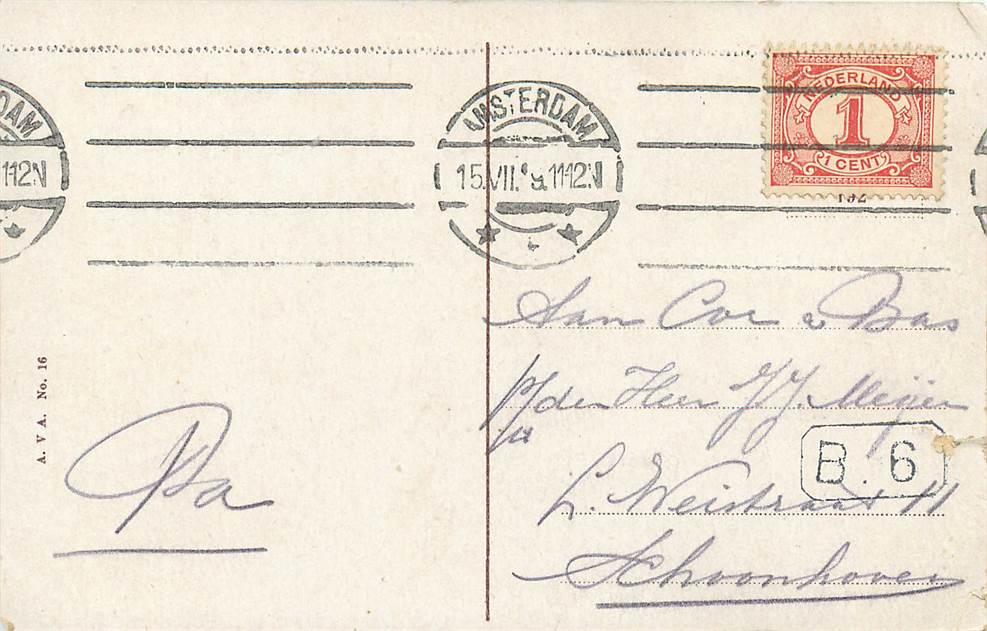 DAM
1112N
AMSTERDAM
15.VII. 1112.N
NEDERLAND
1
1 CENT
Aan Cor & Bas
p/a den Heer J.J. Meijer
B. 6
L. Weistraat 11
Schoonhoven
A. V A. No. 16
Pa